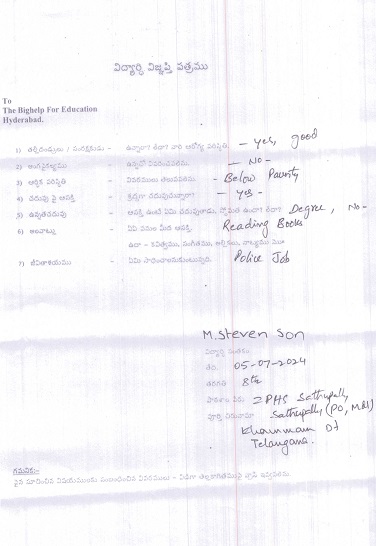 విద్యార్థి విజ్ఞప్తి పత్రము
To
The Bighelp For Education
Hyderabad.
1) తల్లిదండ్రులు / సంరక్షకుడు - ఉన్నారా? లేదా? వారి ఆరోగ్య పరిస్థితి. - yes, good
2) అంగవైకల్యము - ఉన్నచో వివరించవలెను. - No -
3) ఆర్థిక పరిస్థితి - వివరములు తెలుపవలెను. - Below Pavrity
4) చదువు పై ఆసక్తి - శ్రద్ధగా చదువుచున్నారా? - yes -
5) ఉన్నతచదువు - ఆసక్తి ఉంటే ఏమి చదువుతారు, స్తోమత ఉందా? లేదా? Degree, No-
6) అలవాట్లు - ఏఏ పనుల మీద ఆసక్తి. Reading Books
ఉదా - కవిత్వము, సంగీతము, ఆర్టికలు, నాట్యము మొ॥
7) జీవితాశయము - ఏమి సాధించాలనుకుంటున్నది. Police Job
M. Steven Son
విద్యార్థి సంతకం
తేది. 05-07-2024
తరగతి 8th
పాఠశాల పేరు ZPHS Sathupally
పూర్తి చిరునామా Sathupally (PO, Mdl)
Khammam Dt
Telangana.
గమనిక:-
పైన సూచించిన విషయములకు సంబంధించిన వివరములు